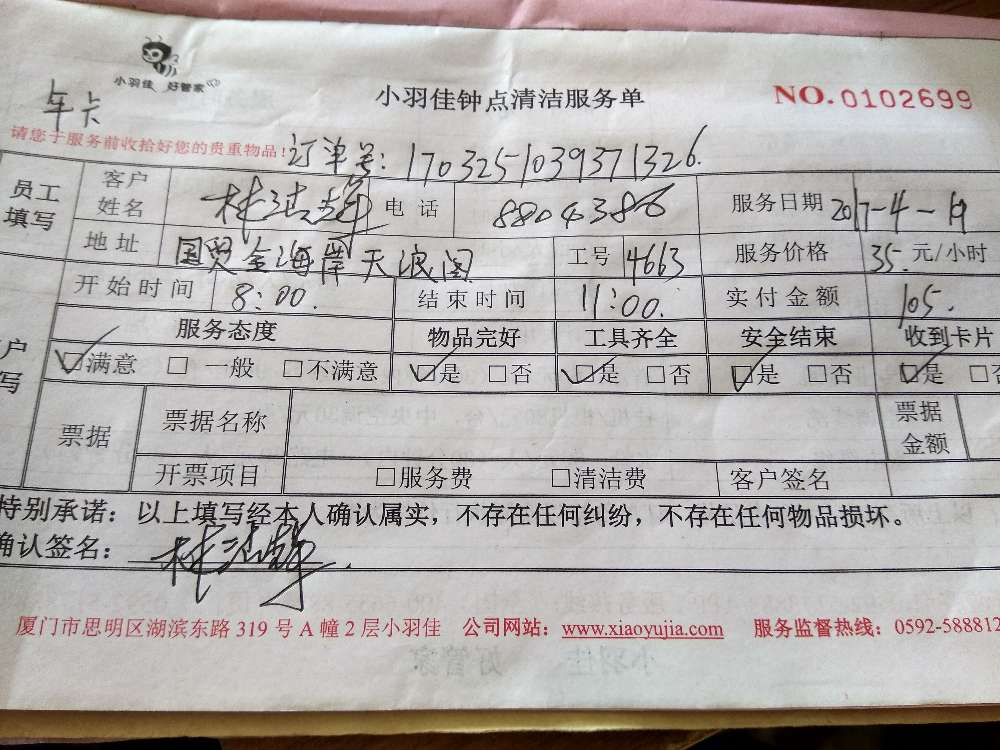 小羽佳 好管家
小羽佳钟点清洁服务单
NO.0102699
年卡
请您于服务前收拾好您的贵重物品!
订单号: 1703251039371326.
员工填写 客户姓名 林洁 电话 8804386 服务日期 2017-4-19
地址 国贸金海岸天浪阁 工号 4663 服务价格 35.元/小时
开始时间 8:00. 结束时间 11:00. 实付金额 105.
户写 服务态度 物品完好 工具齐全 安全结束 收到卡片
☑满意 □一般 □不满意 ☑是 □否 ☑是 □否 ☑是 □否 ☑是 □否
票据 票据名称 票据金额
开票项目 □服务费 □清洁费 客户签名
特别承诺:以上填写经本人确认属实,不存在任何纠纷,不存在任何物品损坏。
确认签名: 林洁
厦门市思明区湖滨东路 319 号 A 幢 2 层小羽佳 公司网站:www.xiaoyujia.com 服务监督热线:0592-588812